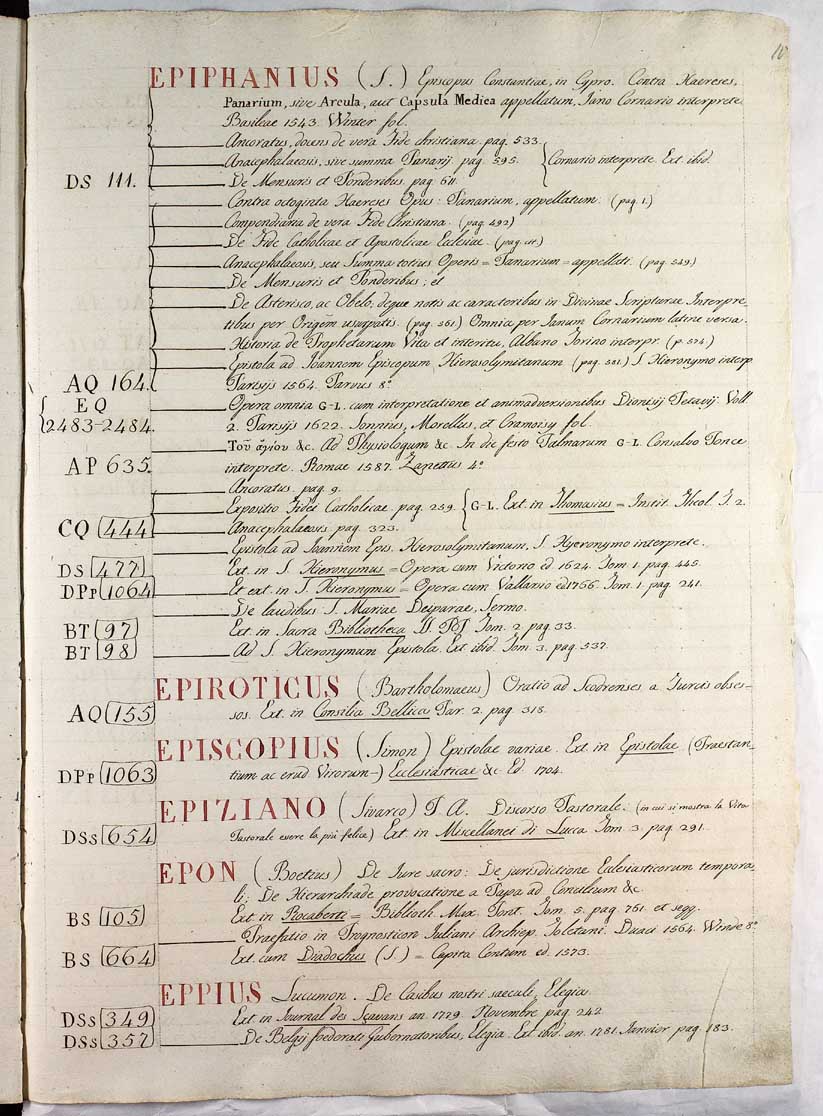 EPIPHANIUS (S.) Episcopus Constantiae, in Cypro. Contra Haereses,
Panarium, sive Arcula, aut Capsula Medica appellatum, Iano Cornario interprete
Basileae 1543. Winter fol.
Ancoratus, docens de vera Fide christiana. pag. 533.
Anacephalaeosis, sive summa Panarij. pag. 595. Cornario interprete. Ext. ibid.
DS 111. De Mensuris et Ponderibus. pag. 611.
Contra octoginta Haereses Opus: Panarium, appellatum. (pag. 1.)
Compendiaria de vera Fide Christiana. (pag. 492)
De Fide Catholicae et Apostolicae Ecclesiae. (pag. )
Anacephalaeosis, seu Summa totius Operis = Panarium = appellati. (pag. 549.)
De Mensuris et Ponderibus; et
De Asterisco, ac Obelo; deque notis ac caracteribus in Divinae Scripturae Interpre-
tibus per Origem usurpatis. (pag. 561) Omnia per Ianum Cornarium latine versa.
Historia de Prophetarum Vita et interitu, Albano Torino interpr. (p. 574.)
Epistola ad Ioannem Episcopum Hierosolymitanum (pag. 581.) S. Hieronymo interp.
AQ 164. Parisijs 1564. Parvus 8.º
EQ 2483-2484. Opera omnia G-L. cum interpretatione et animadversionibus Dionisij Petavij. Voll.
2. Parisijs 1622. Sonnius, Morellus, et Cramoisy fol.
Τοῦ ἁγίου &c. Ad Physiologum &c. In die festo Palmarum G-L. Consalvo Ponce
AP 635. interprete. Romae 1587. Zanettus 4.º
Ancoratus. pag. 9.
Expositio Fidei Catholicae. pag. 259. G-L. Ext. in Thomasius = Instit. Theol. T. 2.
CQ 444 Anacephalaeosis. pag. 323.
Epistola ad Ioannem Epis. Hierosolymitanum, S. Hyeronymo interprete.
DS 477 Ext. in S. Hieronymus = Opera cum Victorio ed 1624. Tom. 1. pag. 445.
DPp 1064 Et ext. in S. Hieronymus = Opera cum Vallarsio ed 1766. Tom. 1. pag. 241.
De laudibus S. Mariae Deiparae, Sermo.
BT 97 Ext. in Sacra Bibliotheca SS. PP. Tom. 2. pag. 33.
BT 98 Ad S. Hieronymum Epistola. Ext. ibid. Tom. 3. pag. 537.
EPIROTICUS (Bartholomaeus) Oratio ad Scodrenses a Turcis obses-
AQ 155 sos. Ext. in Consilia Bellica Par. 2. pag. 318.
EPISCOPIUS (Simon) Epistolae variae. Ext. in Epistolae (Praestan-
DPp 1063 tium ac erud Virorum-) Ecclesiasticae &c. Ed. 1704.
EPIZIANO (Sivarco) P. A. Discorso Pastorale. (in cui si mostra la Vita
DSs 654 Pastorale evere la più felice) Ext. in Miscellanei di Lucca Tom. 3. pag. 291.
EPON (Boetius) De Iure sacro: De jurisdictione Ecclesiasticorum tempora-
li; De Hierarchiade provocatione a Papa ad Concilium &c.
BS 105 Ext. in Rocaberti = Biblioth. Max. Pont. Tom. 5. pag. 761. et segg.
Praefatio in Prognosticon Iuliani Archiep. Toletani. Duaci 1564. Winde 8.º
BS 664 Ext. cum Diadochus (S.) = Capita Centum ed. 1573.
EPPIUS Lucumon. De Casibus nostri saeculi, Elegia.
DSs 349 Ext. in Journal des Sçavans an. 1779. Novembre pag. 242.
DSs 357 De Belgij foederati Gubernatoribus, Elegia. Ext. ibid. an. 1781. Janvier pag. 183.